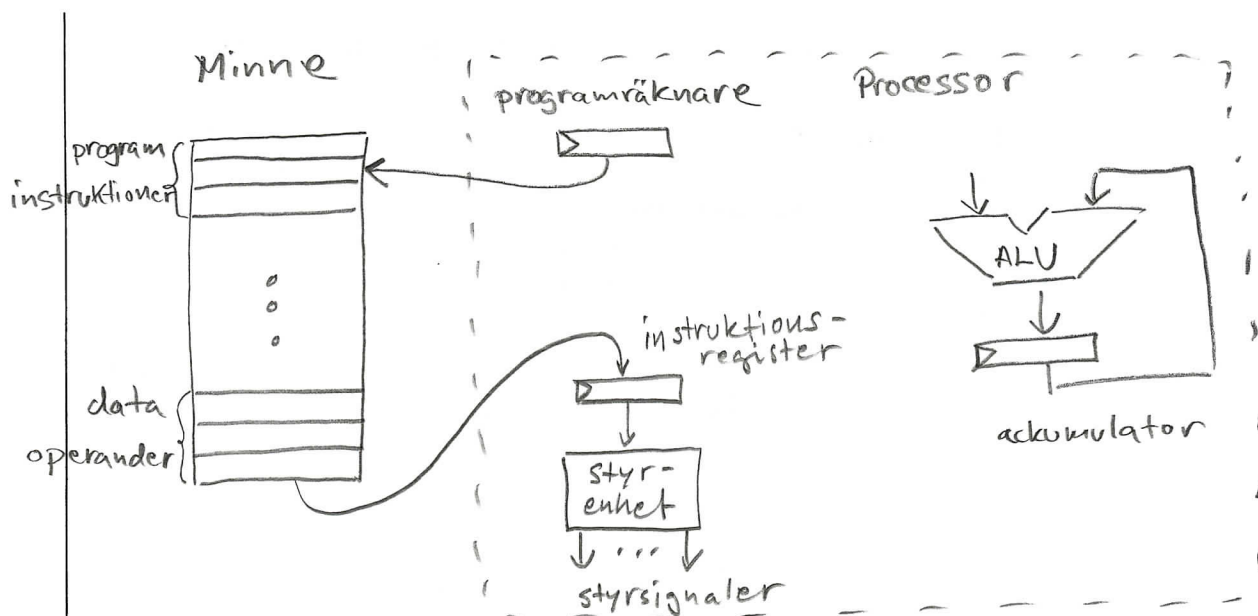 Minne
programräknare
Processor
program
instruktioner
ALU
instruktions-
register
data
operander
ackumulator
styr-
enhet
...
styrsignaler